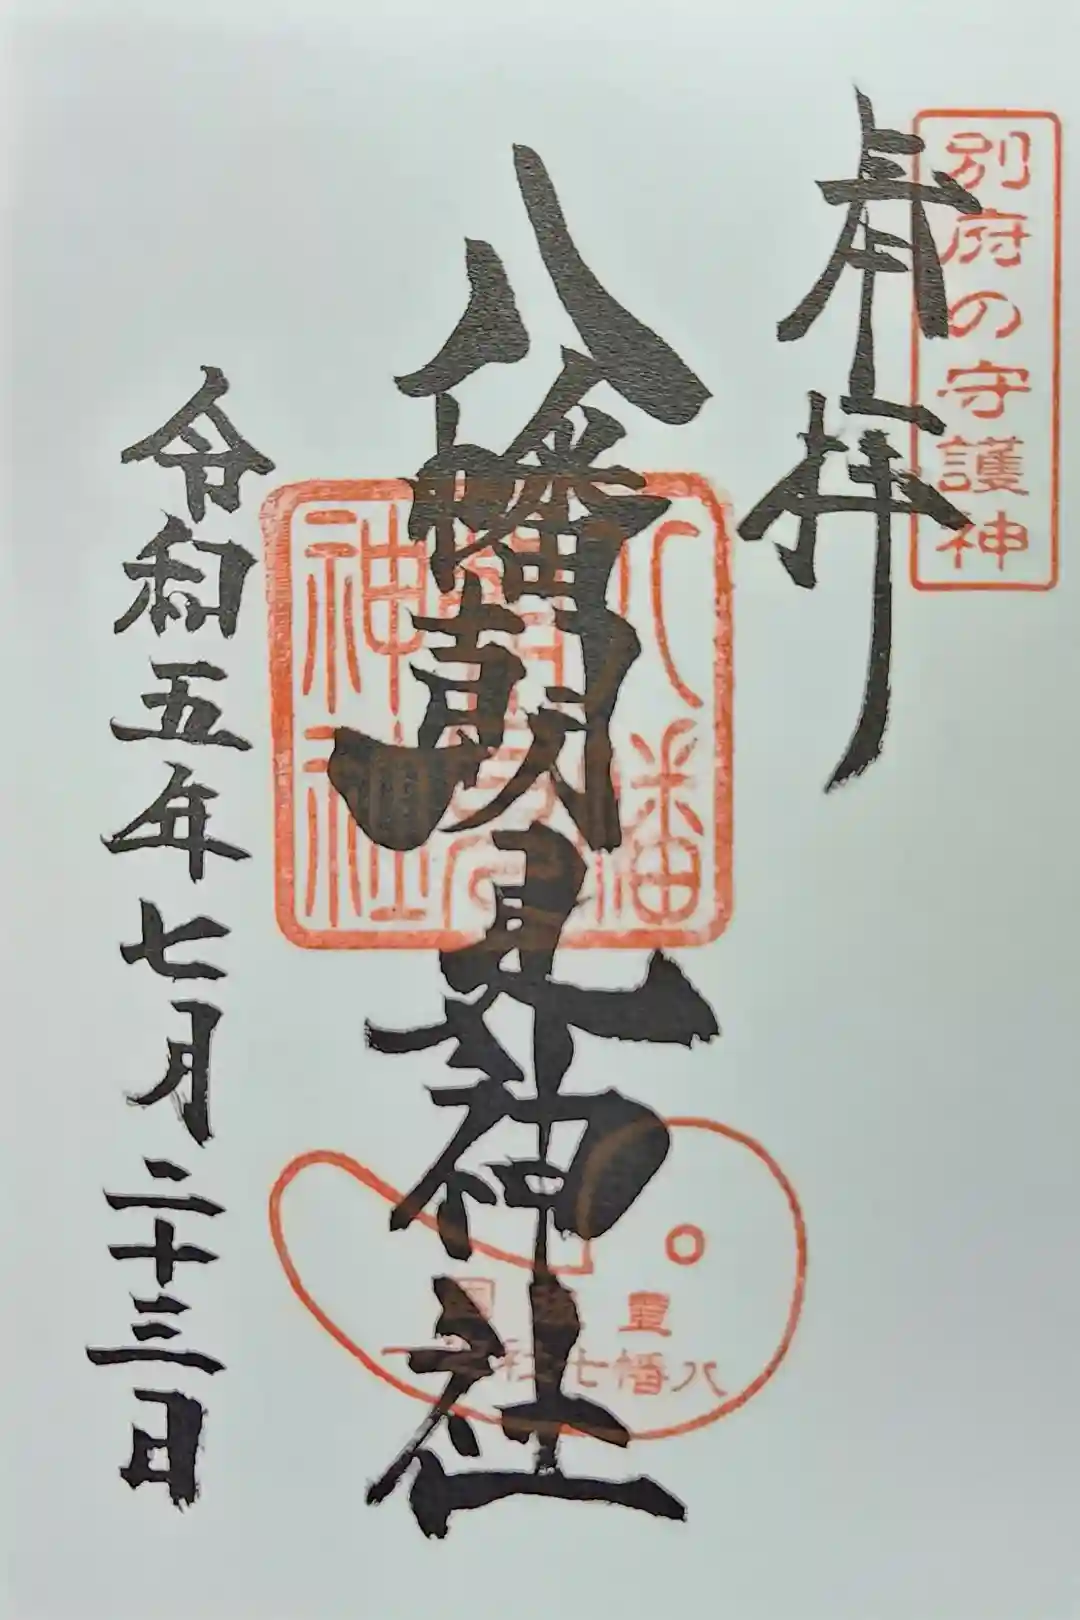 別府の守護神
奉拝
八幡朝見神社
八幡朝見神社
豊後国
八幡七社
令和五年七月二十三日